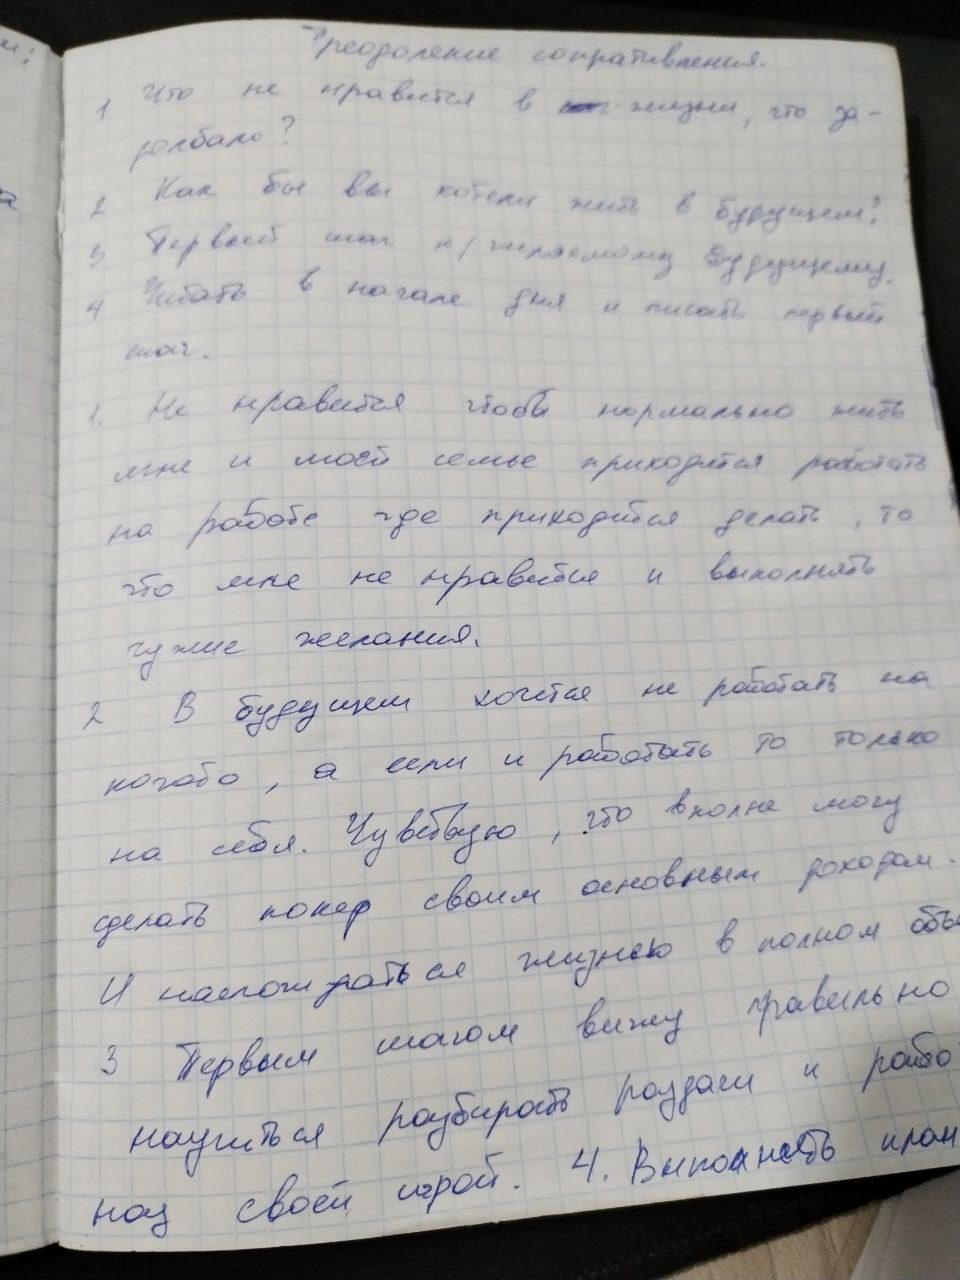 Преодоление сопротивления.
1 Что не нравится в жизни, что за-
долбало?
2 Как бы вы хотели жить в будущем?
3 Первый шаг к желаемому будущему.
4 Читать в начале дня и писать первый
шаг.
1. Не нравится чтобы нормально жить
мне и моей семье приходится работать
на работе где приходится делать, то
что мне не нравится и выполнять
чужие желания.
2 В будущем хочется не работать на
когото, а если и работать то только
на себя. Чувствую, что вполне могу
сделать покер своим основным доходом.
И наслождаться жизнью в полном объё
3 Первым шагом вижу правильно
научиться разбирать раздачи и рабо
над своей игрой. 4. Выполнять план